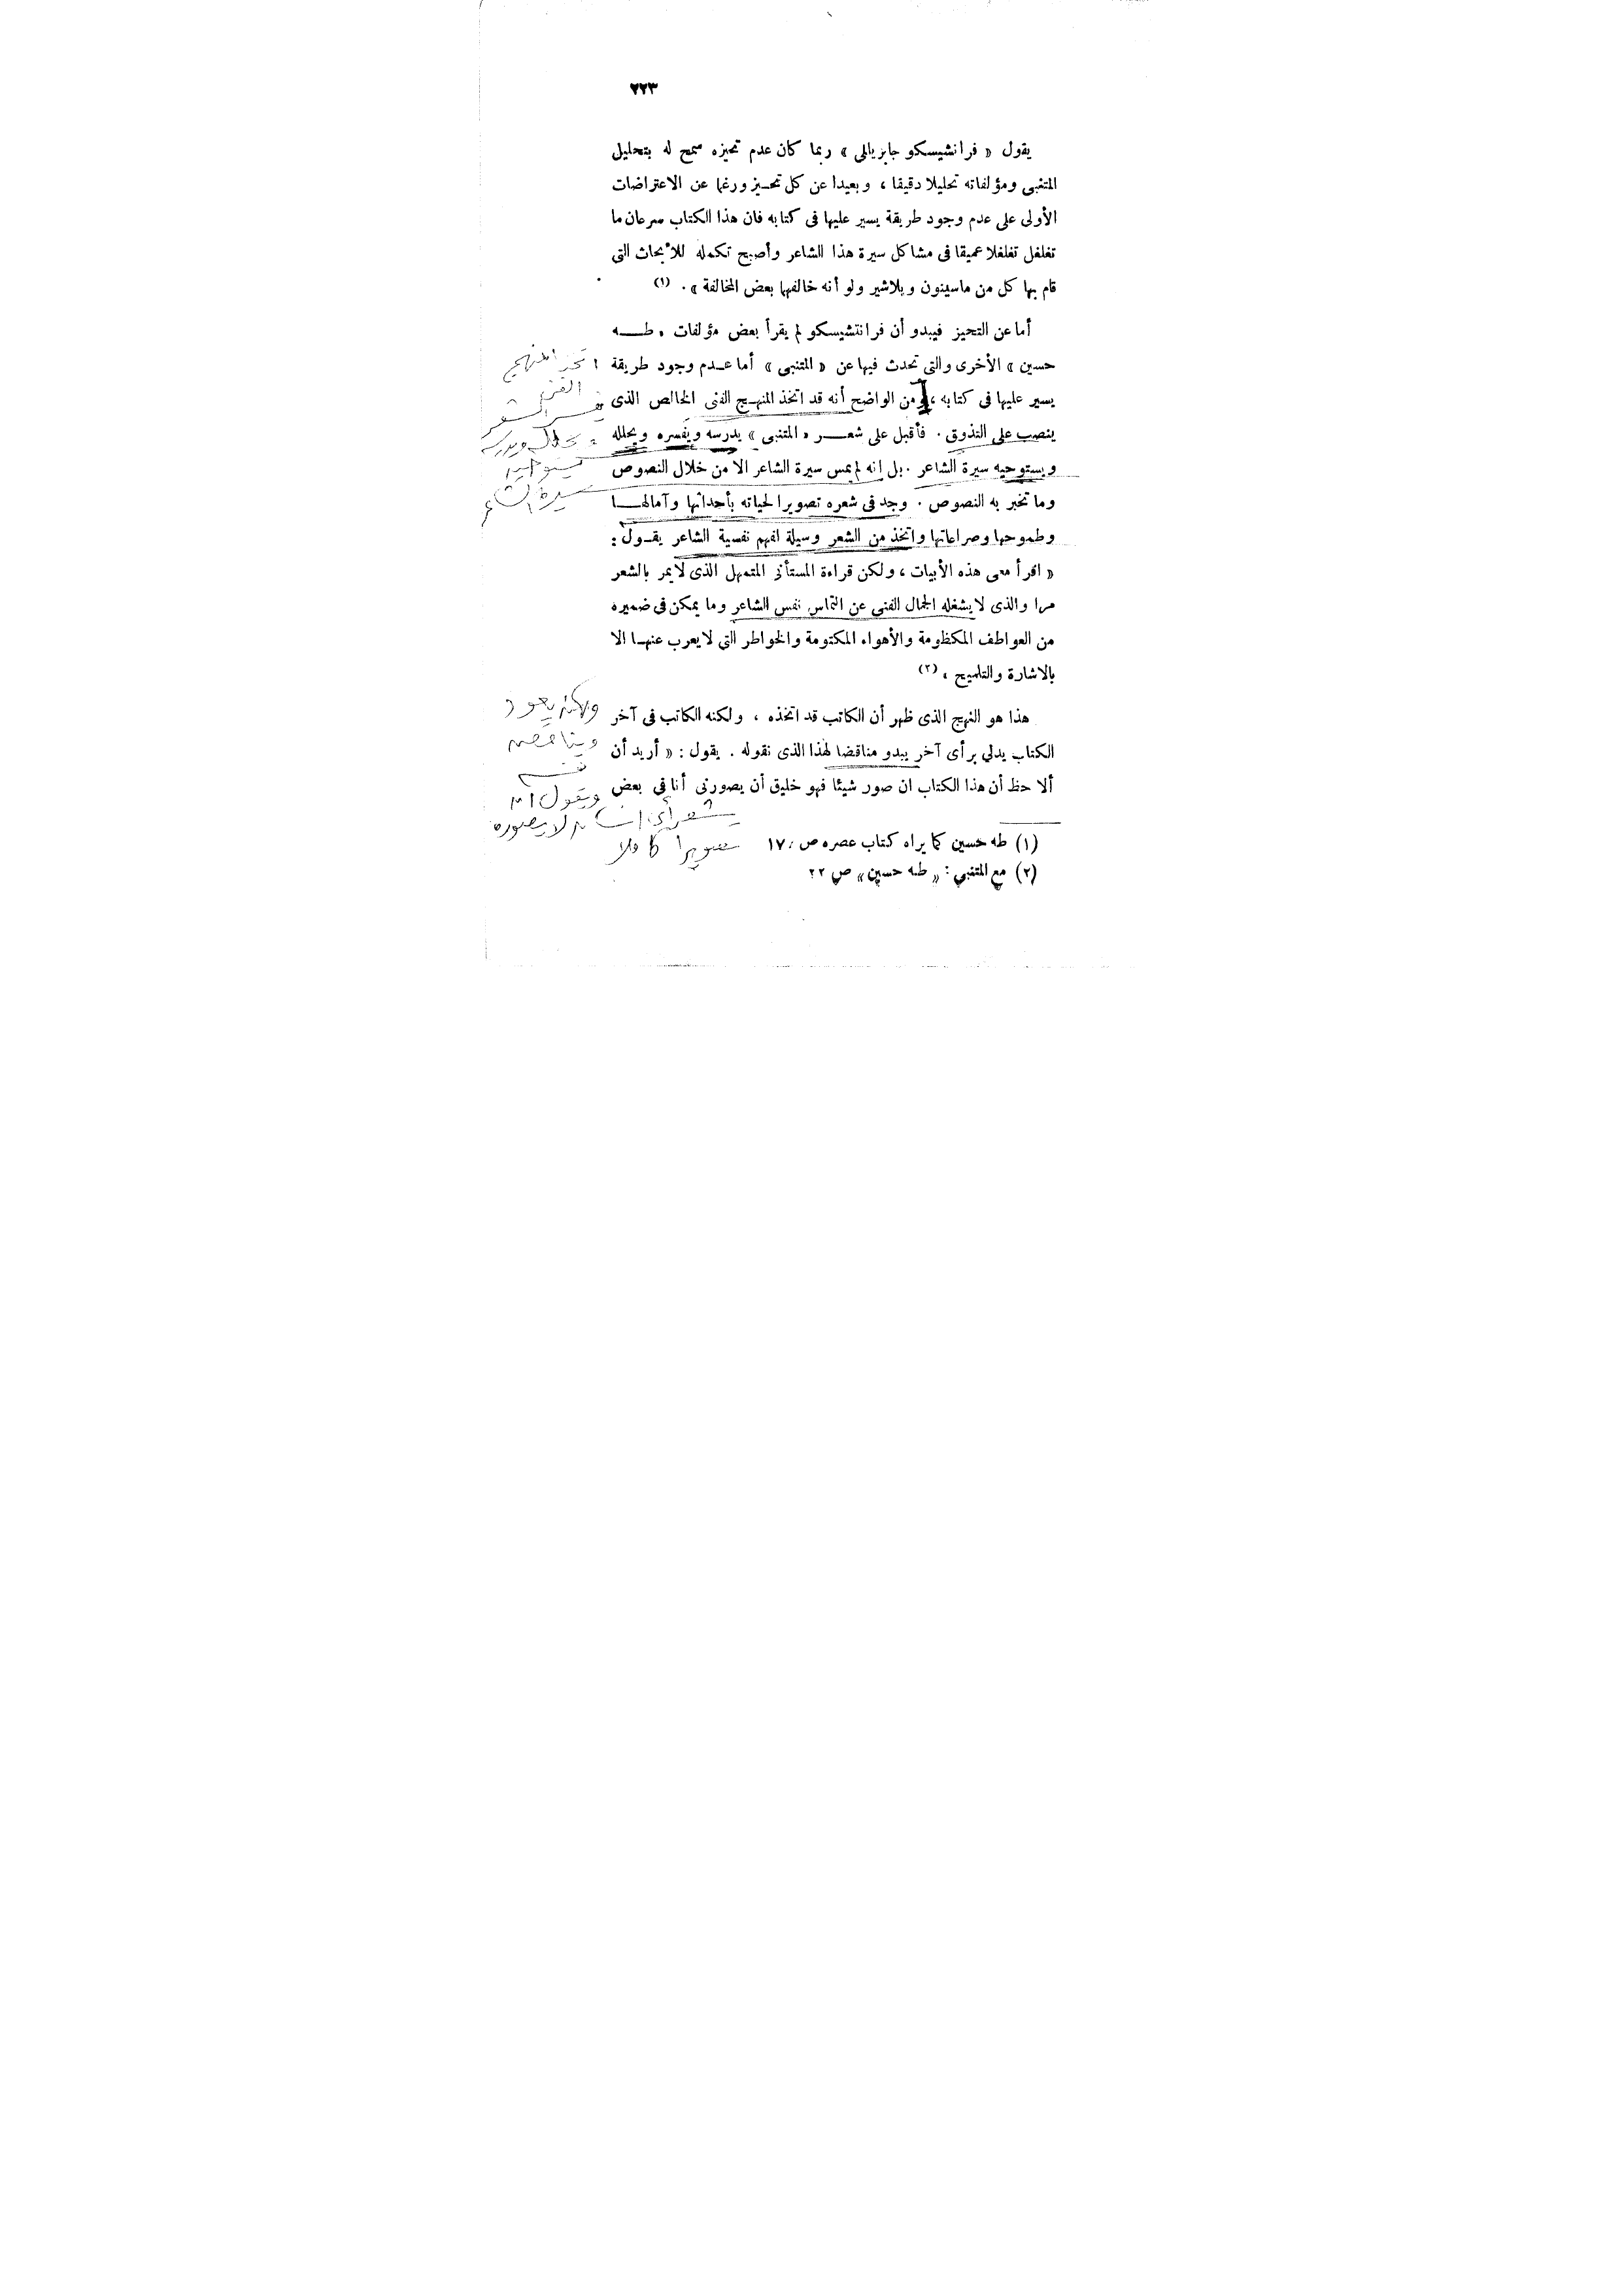 ٢٢٣
يقول « فرانشيسكو جابرياللى » ربما كان عدم تحيزه سمح له بتحليل
المتنبى ومؤلفاته تحليلا دقيقا ، وبعيدا عن كل تحيز ورغما عن الاعتراضات
الأولى على عدم وجود طريقة يسير عليها فى كتابه فان هذا الكتاب سرعان ما
تغلغل تغلغلا عميقا فى مشاكل سيرة هذا الشاعر وأصبح تكمله للأبحاث التى
قام بها كل من ماسينون وبلاشير ولو أنه خالفهما بعض المخالفة » . (١)
أما عن التحيز فيبدو أن فرانتشيسكو لم يقرأ بعض مؤلفات « طـــه
حسين » الأخرى والتى تحدث فيها عن « المتنبى » أما عـدم وجود طريقة
يسير عليها فى كتابه ، فمن الواضح أنه قد اتخذ المنهـج الفنى الخالص الذى
ينصب على التذوق . فأقبل على شعـــر « المتنبى » يدرسه ويفسره ويحلله
ويستوحيه سيرة الشاعر . بل إنه لم يمس سيرة الشاعر الا من خلال النصوص
وما تخبر به النصوص . وجد فى شعره تصويرا لحياته بأحداثها وآمالهـــا
وطموحها وصراعاتها واتخذ من الشعر وسيلة لفهم نفسية الشاعر يقـول :
« اقرأ معى هذه الأبيات ، ولكن قراءة المستأنى المتمهل الذى لا يمر بالشعر
مرا والذى لا يشغله الجمال الفنى عن التماس نفس الشاعر وما يمكن فى ضميره
من العواطف المكظومة والأهواء المكتومة والخواطر التي لا يعرب عنهـا الا
بالاشارة والتلميح ، (٢)
هذا هو النهج الذى ظهر أن الكاتب قد اتخذه ، ولكنه الكاتب فى آخر
الكتاب يدلي برأى آخر يبدو مناقضا لهذا الذى نقوله . يقول : « أريد أن
ألا حظ أن هذا الكتاب ان صور شيئا فهو خليق أن يصورنى أنا في بعض
(١) طه حسين كما يراه كتاب عصره ص ١٧٠
(٢) مع المتنبي : « طه حسين » ص ٢٢
اتخذ المنهج
الفنى
يفسر الشعر
يحلل ويدرس
سيرة الشاعر
ولكنه يعود
ويناقض
نفسه
ويقول ان
شعر أى انسان لا يصوره
تصويرا كاملا